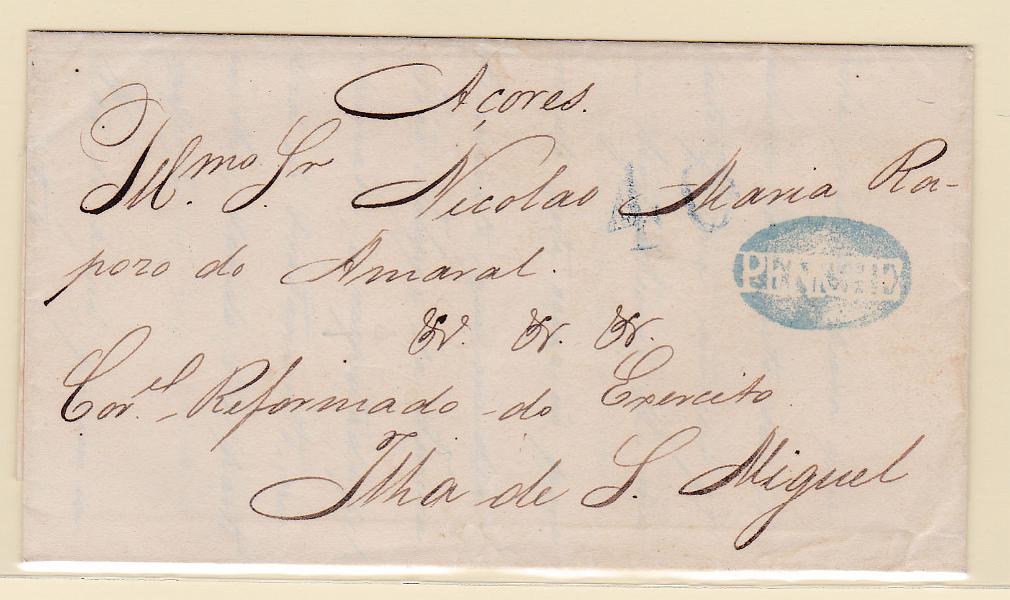 Açores.
Illmo. Sr. Nicolao Maria Ra-
pozo do Amaral.
&r. &r. &r.
Corel. Reformado do Exercito
Ilha de S. Miguel
PENICHE